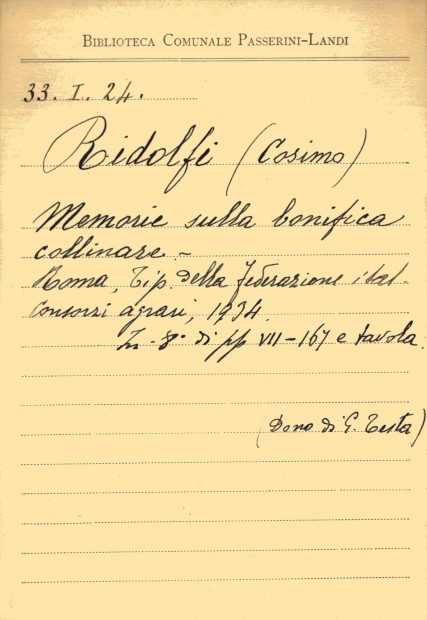 BIBLIOTECA COMUNALE PASSERINI-LANDI
33. I. 24.
Ridolfi (Cosimo)
Memorie sulla bonifica
collinare -
Roma, Tip. della Federazione ital.
Consorzi agrari, 1934.
In-8° di pp VII-167 e tavola.
(Dono di G. Testa)